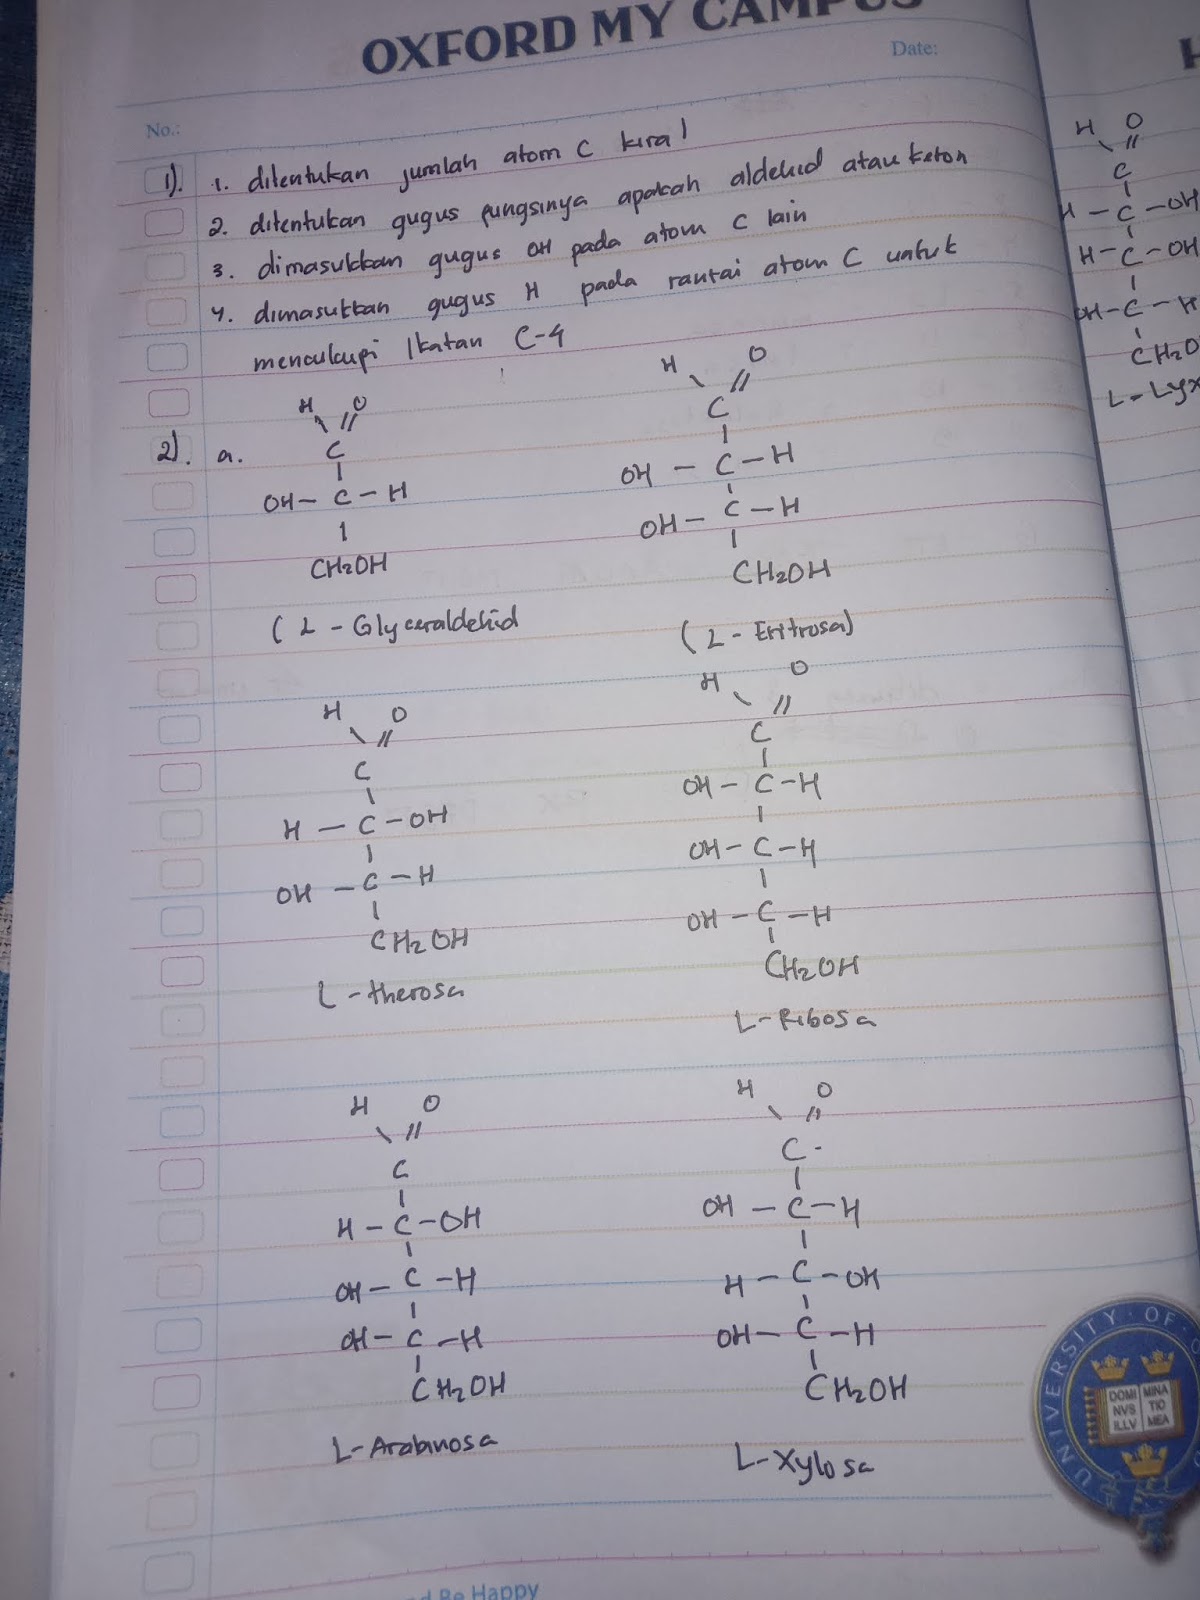 OXFORD MY CAMPUS
Date:
No.:
1). 1. ditentukan jumlah atom C kiral
2. ditentukan gugus fungsinya apakah aldehid atau keton
3. dimasukkan gugus OH pada atom C lain
4. dimasukkan gugus H pada rantai atom C untuk
mencukupi Ikatan C-4
2). a.
H O
C
OH - C - H
CH2OH
(L - Glyceraldehid
H O
C
OH - C - H
OH - C - H
CH2OH
(L - Eritrosa)
H O
C
H - C - OH
OH - C - H
CH2OH
L - therosa
H O
C
OH - C - H
OH - C - H
OH - C - H
CH2OH
L - Ribosa
H O
C
H - C - OH
OH - C - H
OH - C - H
CH2OH
L - Arabinosa
H O
C
OH - C - H
H - C - OH
OH - C - H
CH2OH
L - Xylosa
H O
C
H - C - OH
H - C - OH
OH - C - H
CH2O
L - Lyx
UNIVERSITY OF
DOMI MINA
NVS TIO
ILLV MEA
Be Happy